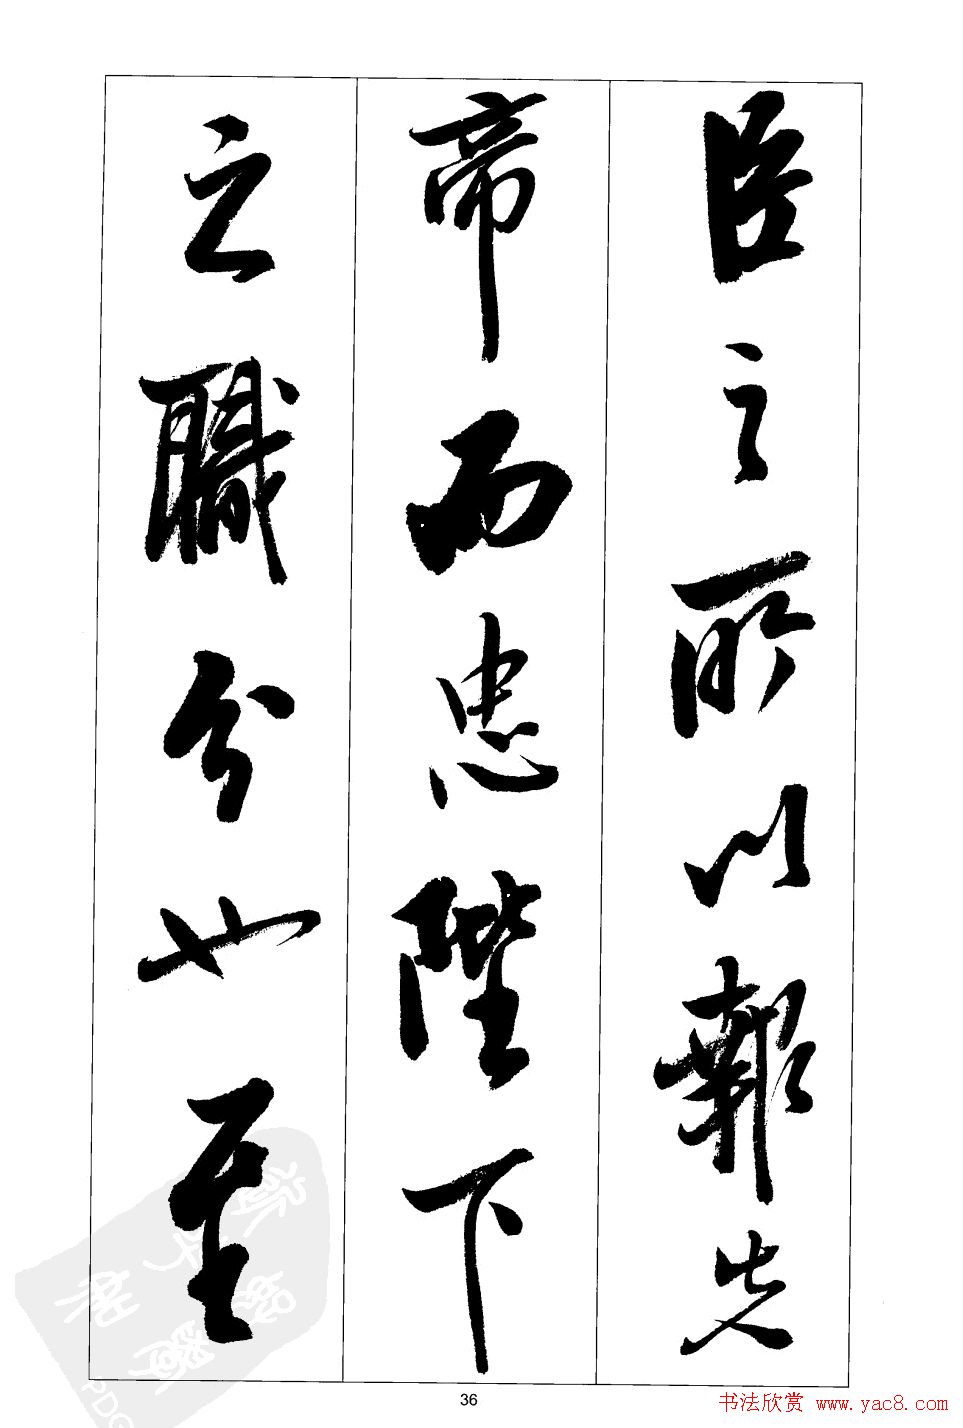 臣之所以報先
帝而忠陛下
之職分也至
36
书法欣赏 www.yac8.com